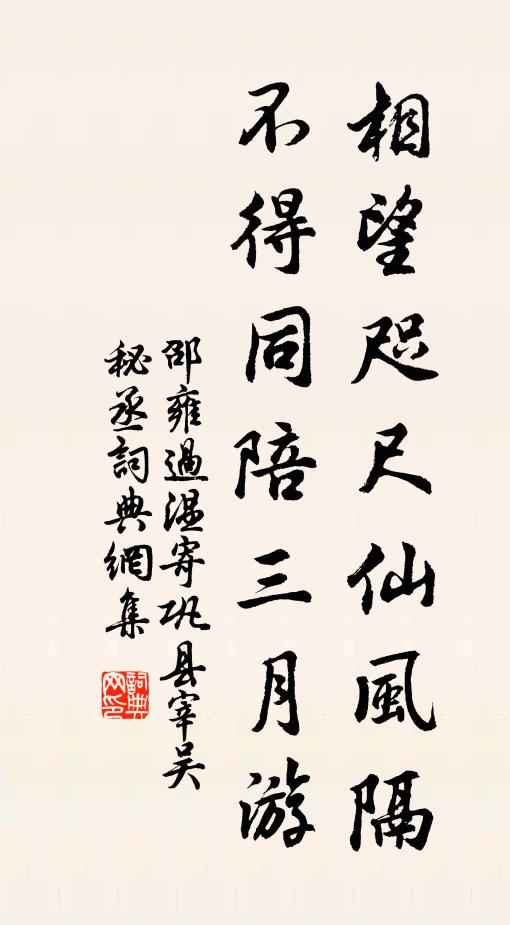 相望咫尺仙風隔
不得同陪三月游
邵雍過温寄巩县宰吴
秘丞詞典網集
詞典网印